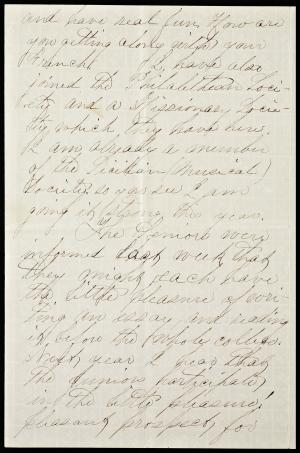 and have real fun. How are
you getting along with your
French? I have also
joined the Philalethean Soci-
ety and a Missionary Socie-
ty, which they have here.
I am already a member
of the Cecilian (Musical)
Society so you see I am
going it strong this year.
The Seniors were
informed last week that
they might each have
the little pleasure of wri-
ting an essay and reading
it before the whole college.
Next year I fear that
the Juniors participate
in the little pleasure!
pleasant prospect for